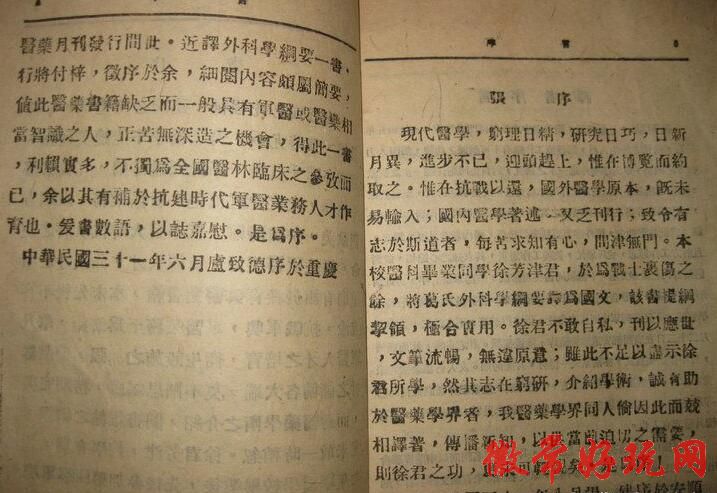 醫藥月刊發行問此。近譯外科學綱要一書，
行將付梓，徵序於余，細閱內容頗屬簡要，
值此醫藥書籍缺乏而一般具有軍醫或醫藥相
當智識之人，正苦無深造之機會，得此一書
，利賴實多，不獨爲全國醫林臨床之參攷而
已，余以其有補於抗建時代軍醫業務人才作
育也。爰書數語，以誌嘉慰。是爲序。
中華民國三十一年六月盧致德序於重慶
張序
現代醫學，窮理日精，研究日巧，日新
月異，進步不已，迎頭趕上，惟在博覽而約
取之。惟在抗戰以還，國外醫學原本，既未
易輸入；國內醫學著述，又乏刊行；致令有
志於斯道者，每苦求知有心，問津無門。本
校醫科畢業同學徐芳津君，於爲戰士裹傷之
餘，將葛氏外科學綱要譯爲國文，該書提綱
挈領，極合實用。徐君不敢自私，刊以應世
，文筆流暢，無違原意；雖此不足以盡示徐
君所學，然其志在窮研，介紹學術，誠有助
於醫藥學界者，我醫藥學界同人倘因此而競
相譯著，傳播新知，以供當前迫切之需要，
則徐君之功，
徽常好玩网